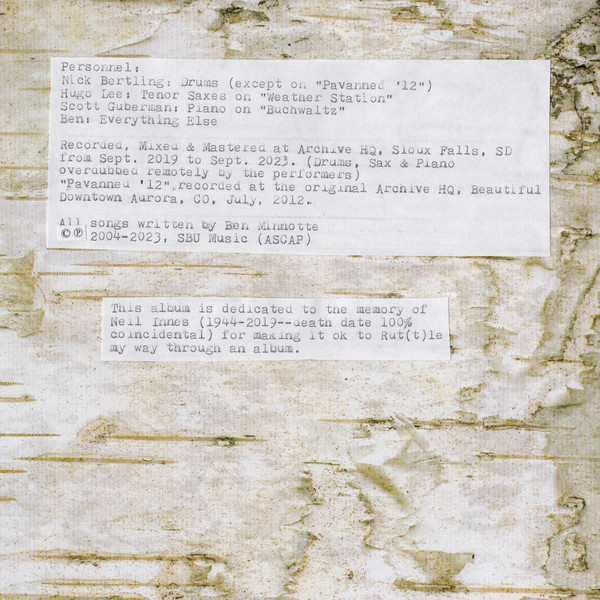 Personnel:
Nick Bertling: Drums (except on "Pavanned '12")
Hugo Lee: Tenor Saxes on "Weather Station"
Scott Guberman: Piano on "Buchwaltz"
Ben: Everything Else
Recorded, Mixed & Mastered at Archive HQ, Sioux Falls, SD
from Sept. 2019 to Sept. 2023. (Drums, Sax & Piano
overdubbed remotely by the performers)
"Pavanned '12" recorded at the original Archive HQ, Beautiful
Downtown Aurora, CO, July, 2012.
All songs written by Ben Minnotte
©℗ 2004-2023, SBU Music (ASCAP)
This album is dedicated to the memory of
Neil Innes (1944-2019--death date 100%
coincidental) for making it ok to Rut(t)le
my way through an album.